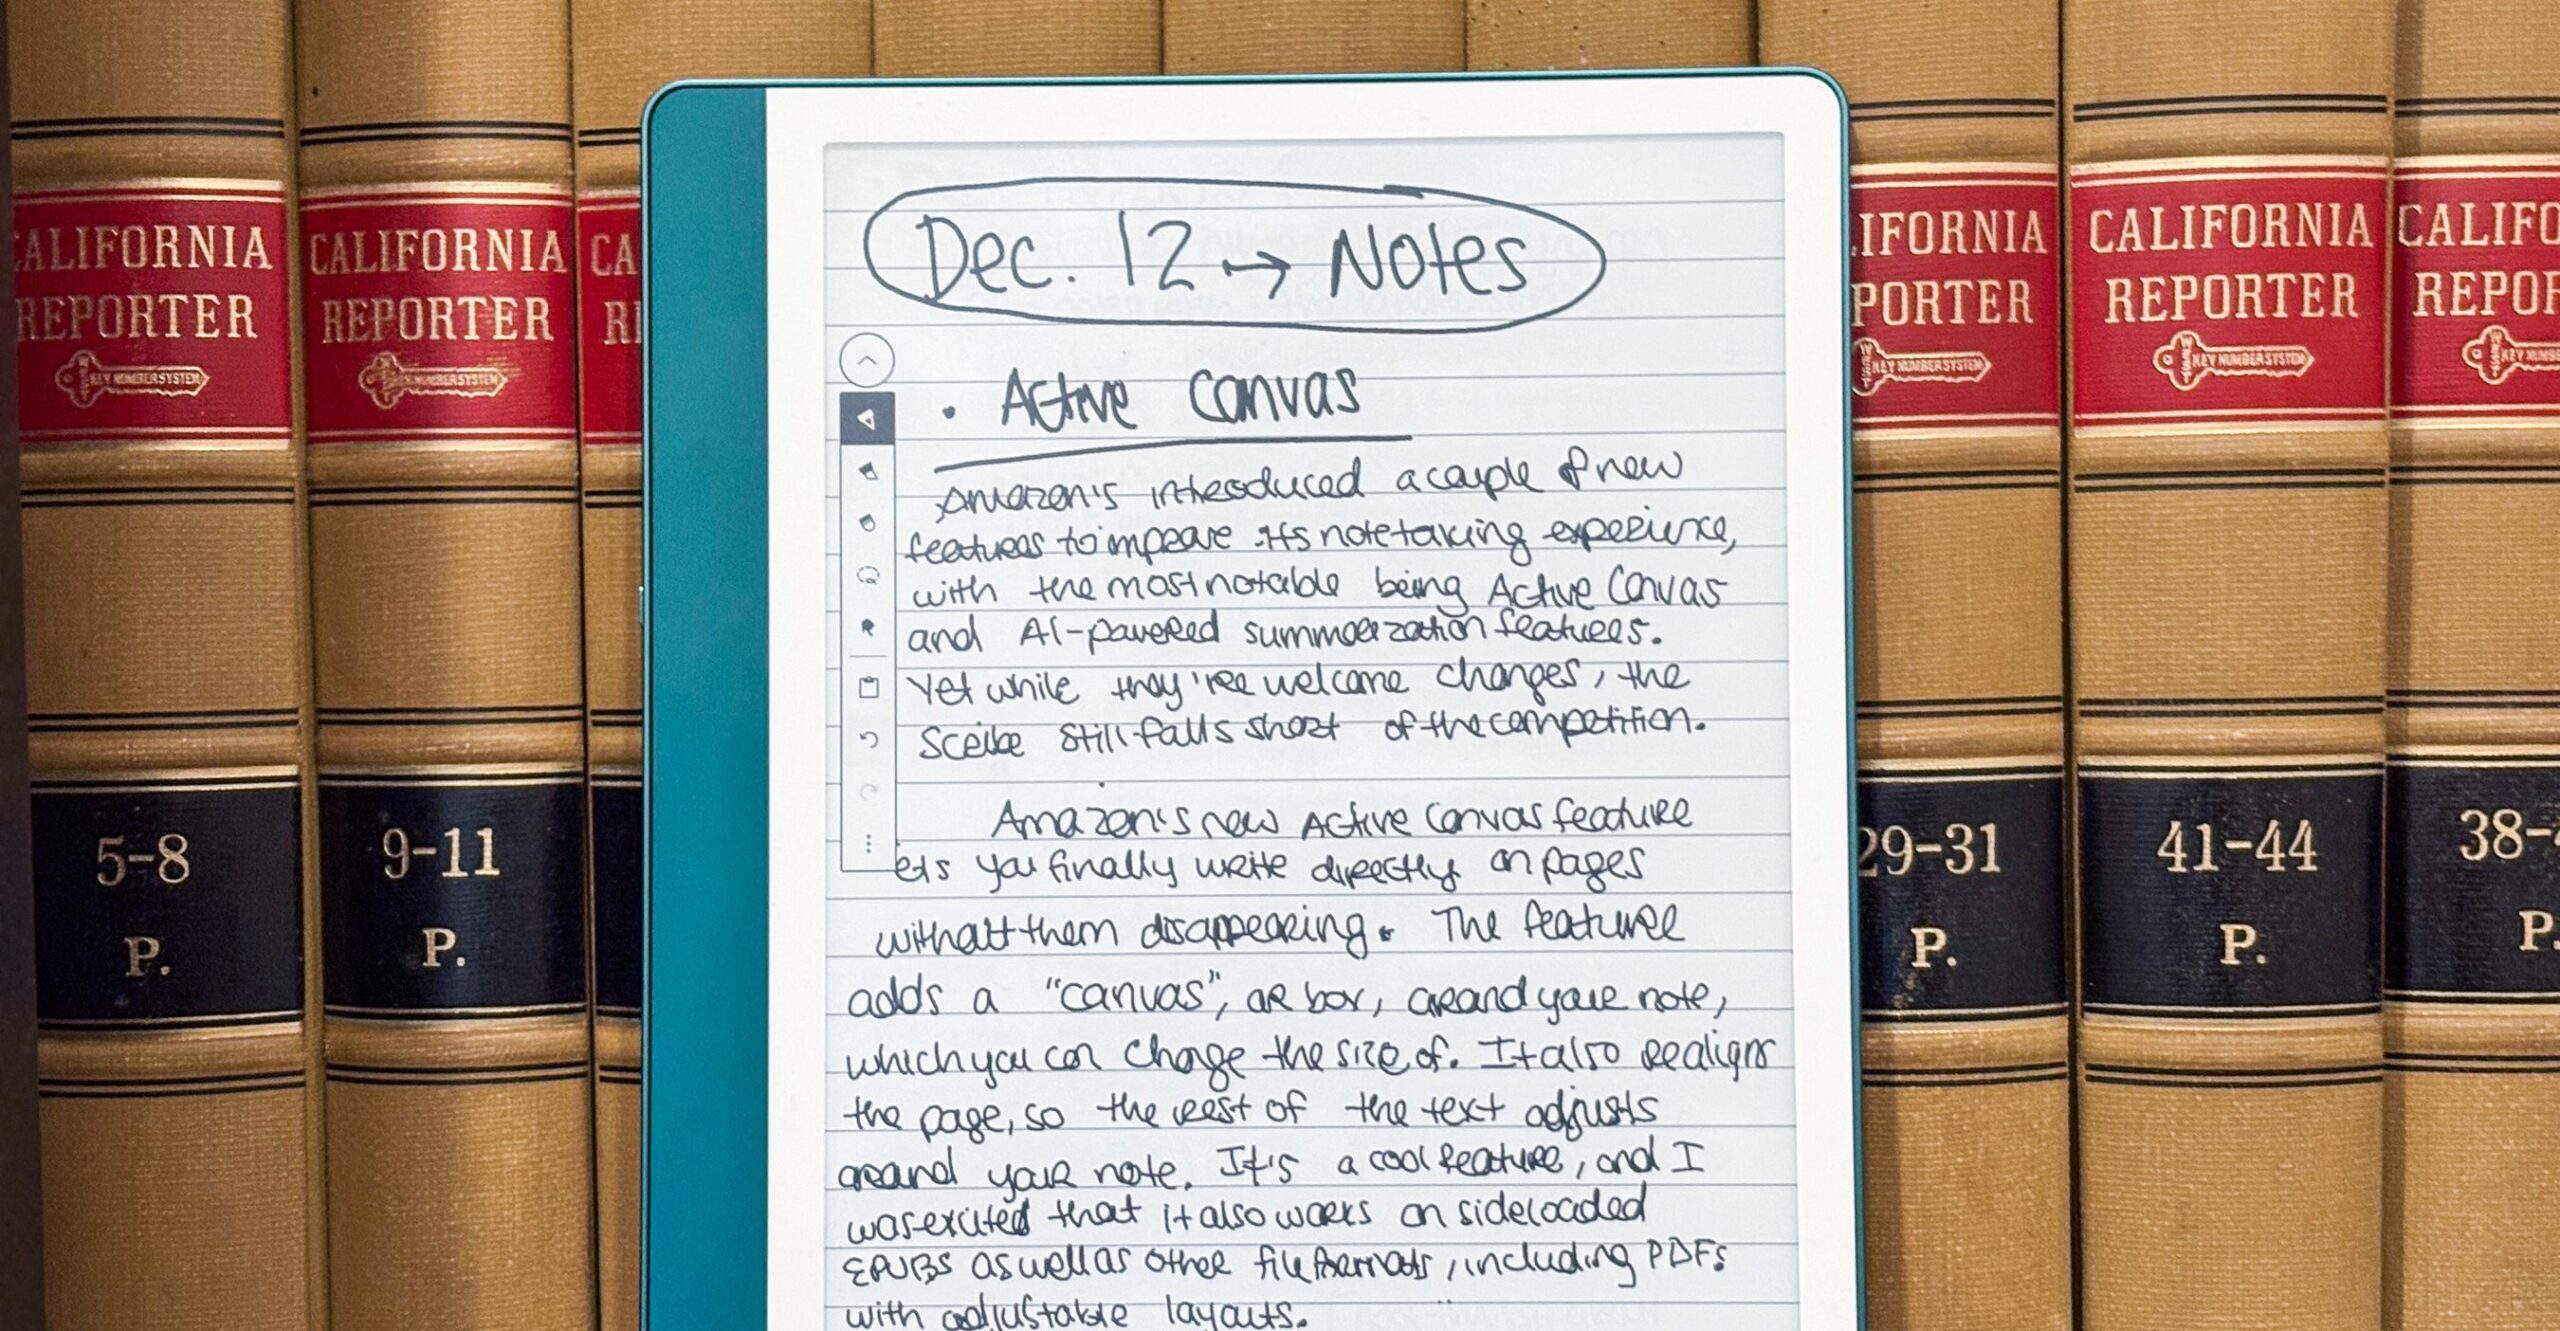 CALIFORNIA
REPORTER
KEY NUMBER SYSTEM
5-8
P.
CALIFORNIA
REPORTER
KEY NUMBER SYSTEM
9-11
P.
CA
Dec. 12 → Notes
• Active Canvas
Amazon's introduced a couple of new
features to improve its notetaking experience,
with the most notable being Active Canvas
and AI-powered summarization features.
Yet while they're welcome changes, the
Scribe still falls short of the competition.
Amazon's new Active Canvas feature
ets you finally write directly on pages
without them disappearing. The feature
adds a "canvas", or box, around your note,
which you can change the size of. It also realigns
the page, so the rest of the text adjusts
around your note. It's a cool feature, and I
was excited that it also works on sideloaded
EPUBS as well as other file formats, including PDFs
with adjustable layouts.
IFORNIA
PORTER
KEY NUMBER SYSTEM
29-31
P.
CALIFORNIA
REPORTER
WEST
KEY NUMBER SYSTEM
41-44
P.
CALIFO
REPOR
KEY NUMBE
38-
P.